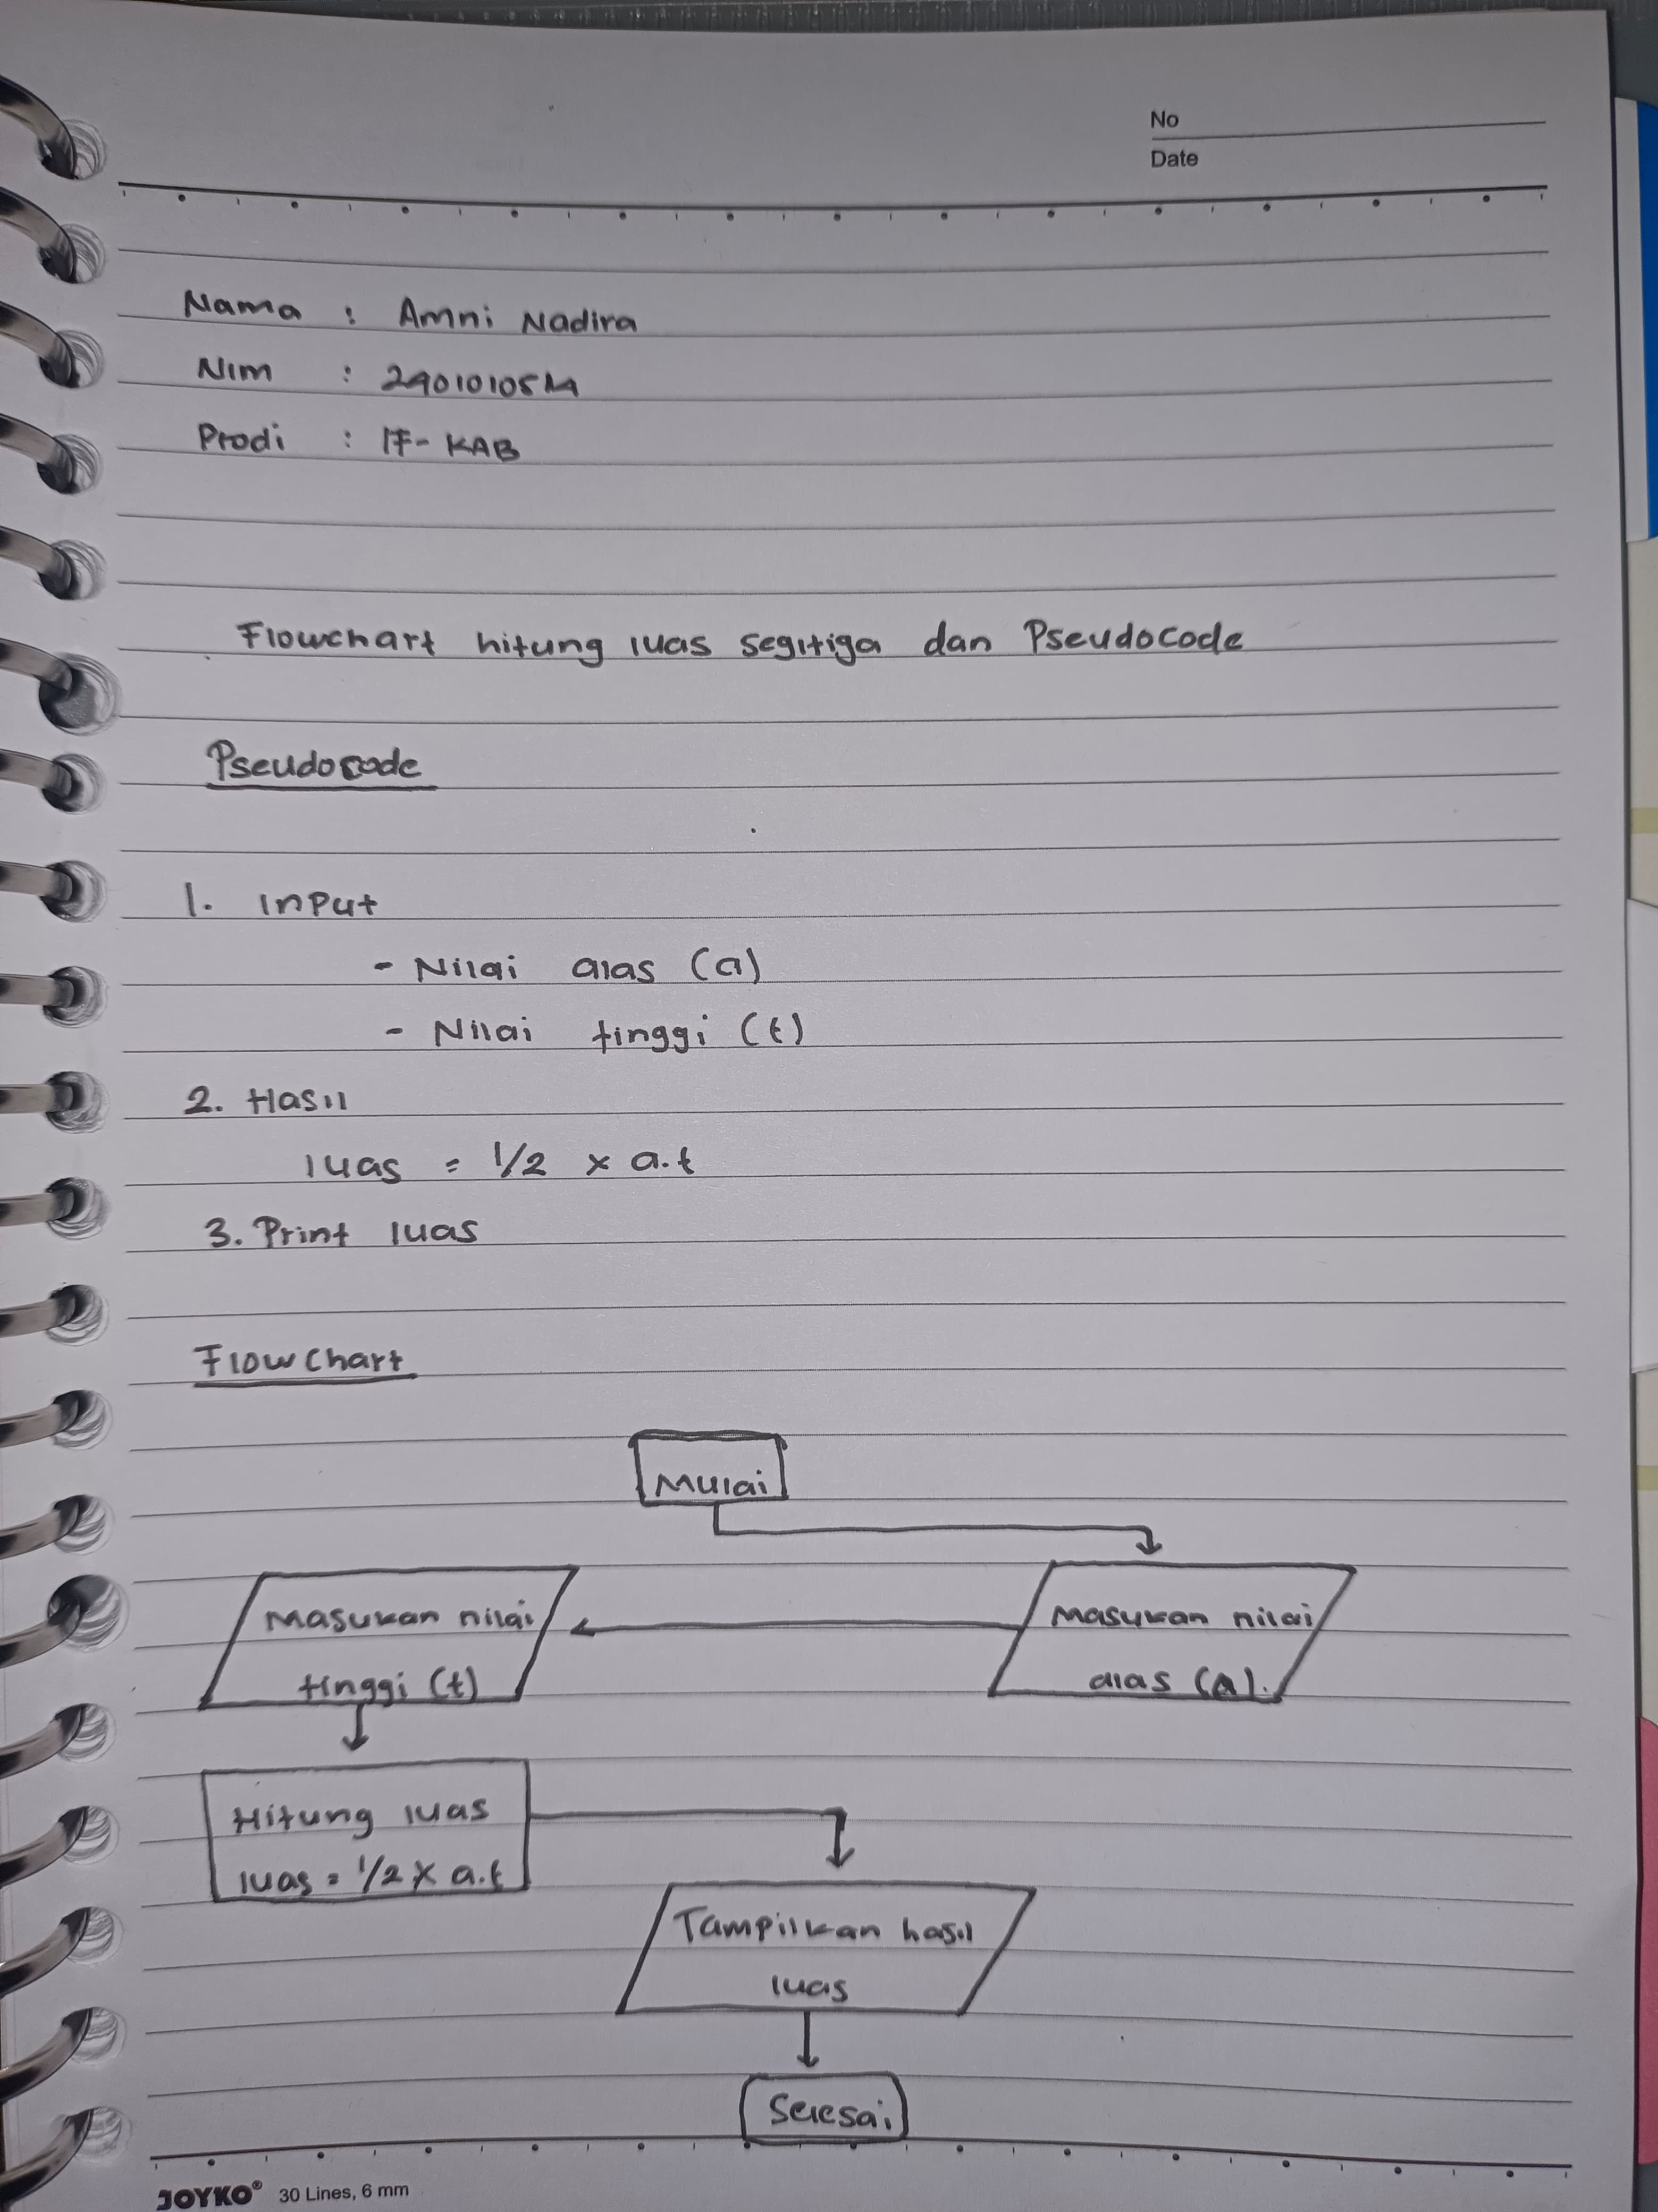 No
Date
Nama : Amni Nadira
Nim :
Prodi : IF- KAB
Flowchart hitung luas segitiga dan Pseudocode
Pseudocode
1. Input
- Nilai alas (a)
- Nilai tinggi (t)
2. Hasil
luas = 1/2 x a.t
3. Print luas
Flowchart
Mulai
Masukan nilai tinggi (t)
Masukan nilai alas (a).
Hitung luas
luas = 1/2 x a.t
Tampilkan hasil
luas
Selesai
JOYKO® 30 Lines, 6 mm